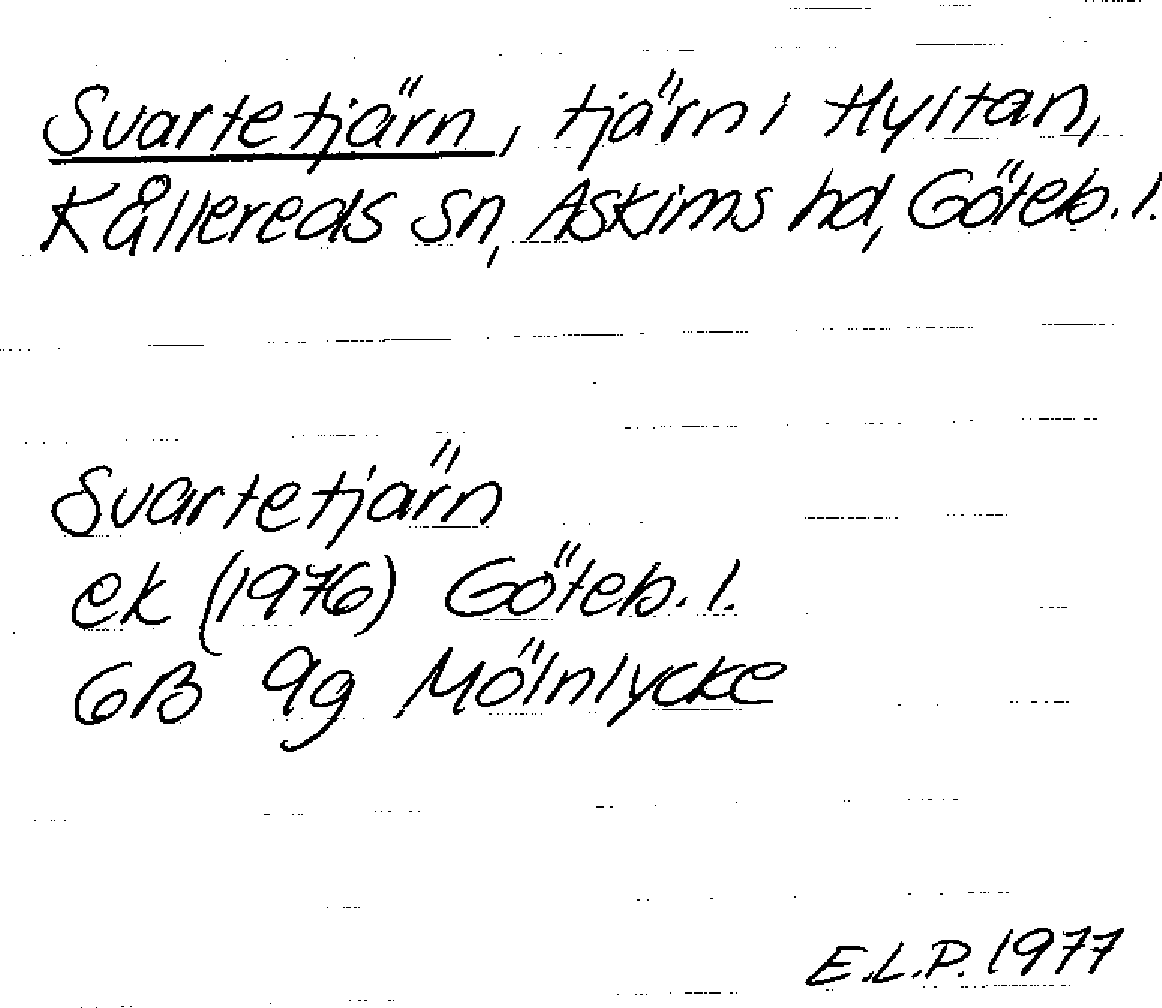 Svartetjärn, tjärn i Hyltan,
Kållereds sn, Askims hd, Göteb. l.
Svartetjärn
ek (1976) Göteb. l.
6B 9g Mölnlycke
E.L.P. 1977